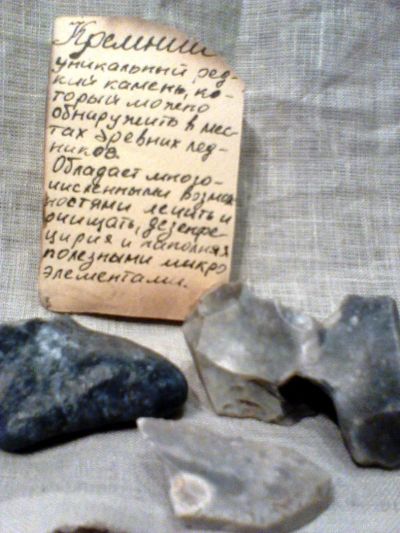 Кремнии
уникальный ред-
кий камень, ко-
торый можно
обниружить в мес-
тах древних лед-
ников.
Обладает много-
численными возмож
ностями лечить и
очищать, дезенфе-
цируя и наполняя
полезными микро
элементами.